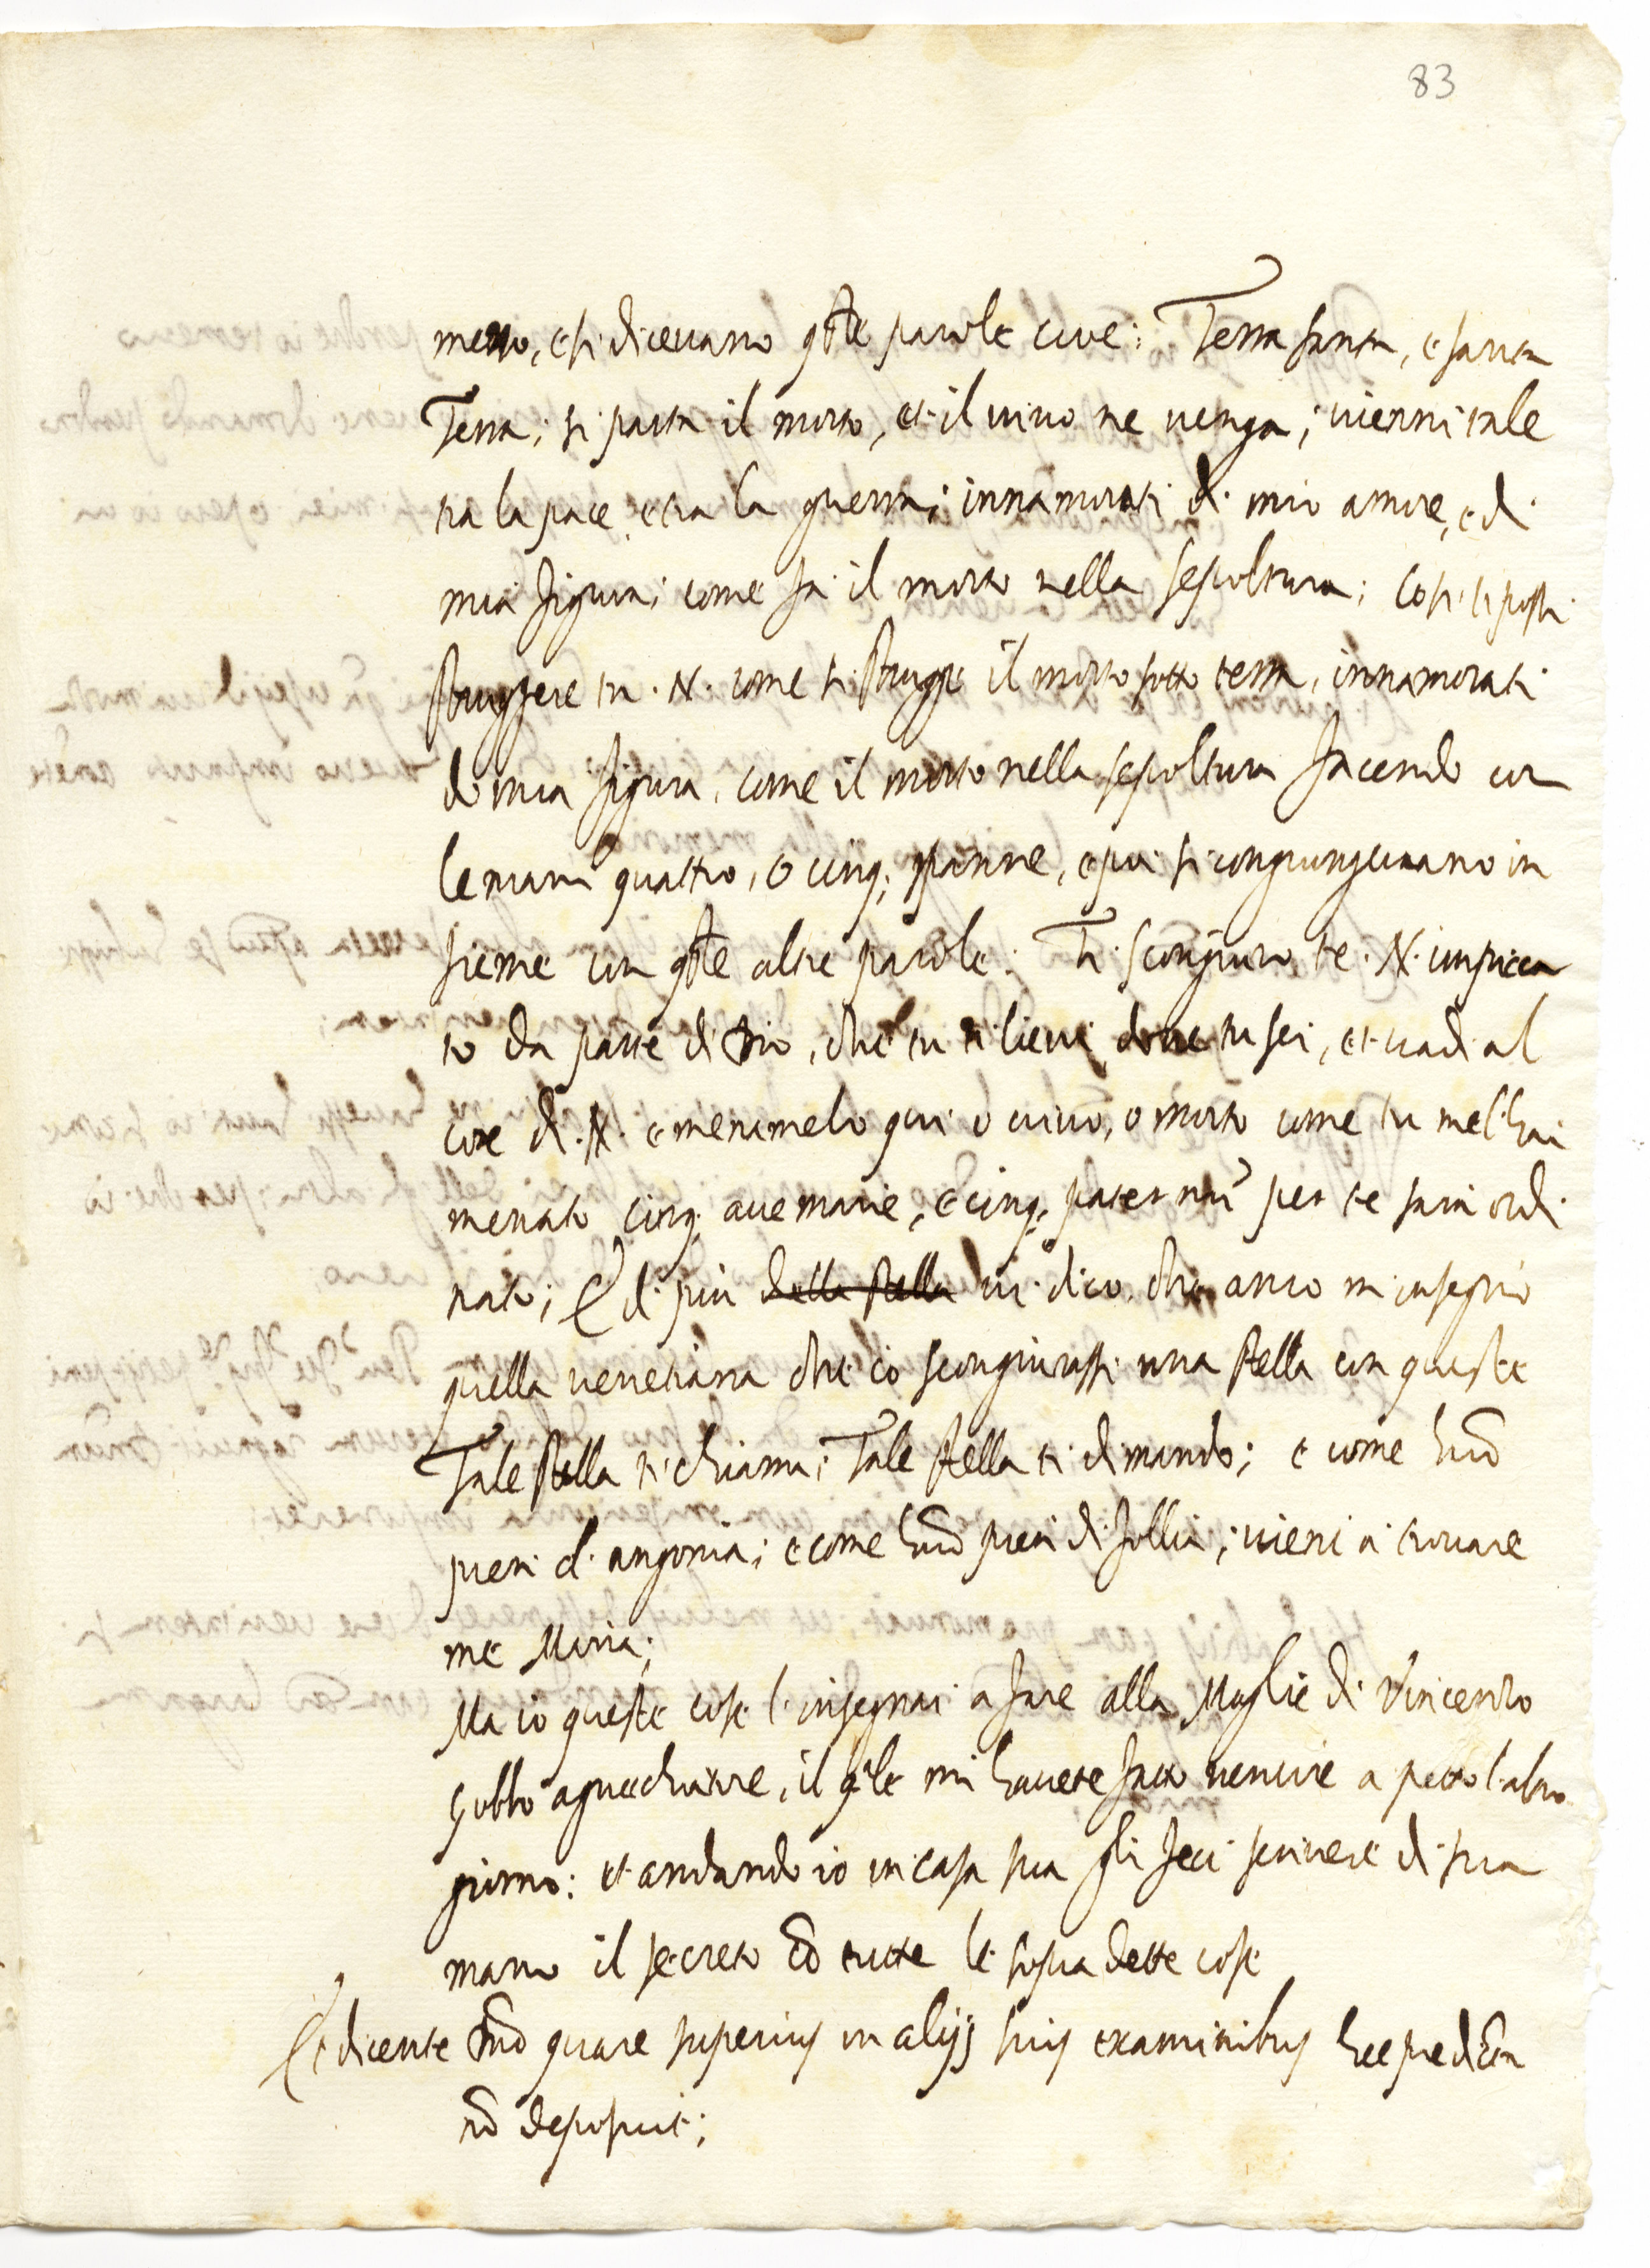 83
mezzo, e si diceuano q̃ste parole cioe: Terra santa, e santa
Terra; si parta il morto, et il uiuo ne uenga; uienni tale
tra la pace, e tra la guerra; innamorati di mio amore, e di
mia figura; come fa il morto nella sepoltura; Cosi ti possi
struggere tu .N. come si strugge il morto sotto terra, innamorati
di mia figura, come il morto nella sepoltura facendo con
le mani quattro, o cinq; spanne, e poi si congiungeuano in
sieme con q̃ste altre parole: Ti scongiuro te .N. impicca
to da parte di Dio, che tu ti lieui doue tu sei, et uadi al
core di .N. e menamelo qui o uiuo, o morto come tu mel'hai
menato cinq; aue marie, e cinq; pater nr̃i per te sara ordi
nato; E di piu della stella ui dico, che anco m'insegnò
quella venetiana che io scongiurassi una stella con queste
Tale stella ti chiama; Tale stella ti dimando; e come huõ
pieri d'angonia; e come huõ pieri di follia; uieni a trouare
me Maria;
Ma io queste cose l'insegnai a fare alla Moglie di Vincenzo
gobbo agucchiatore, il q̃le mi hauete fatto uenire a petto l'altro
giorno: et andando io in casa sua gli feci scriuere di sua
mano il secreto cõ tutte le sopra dette cose
Et dicente Dño quare superius in alijs suis examinibus hec predicta
nõ deposuit;